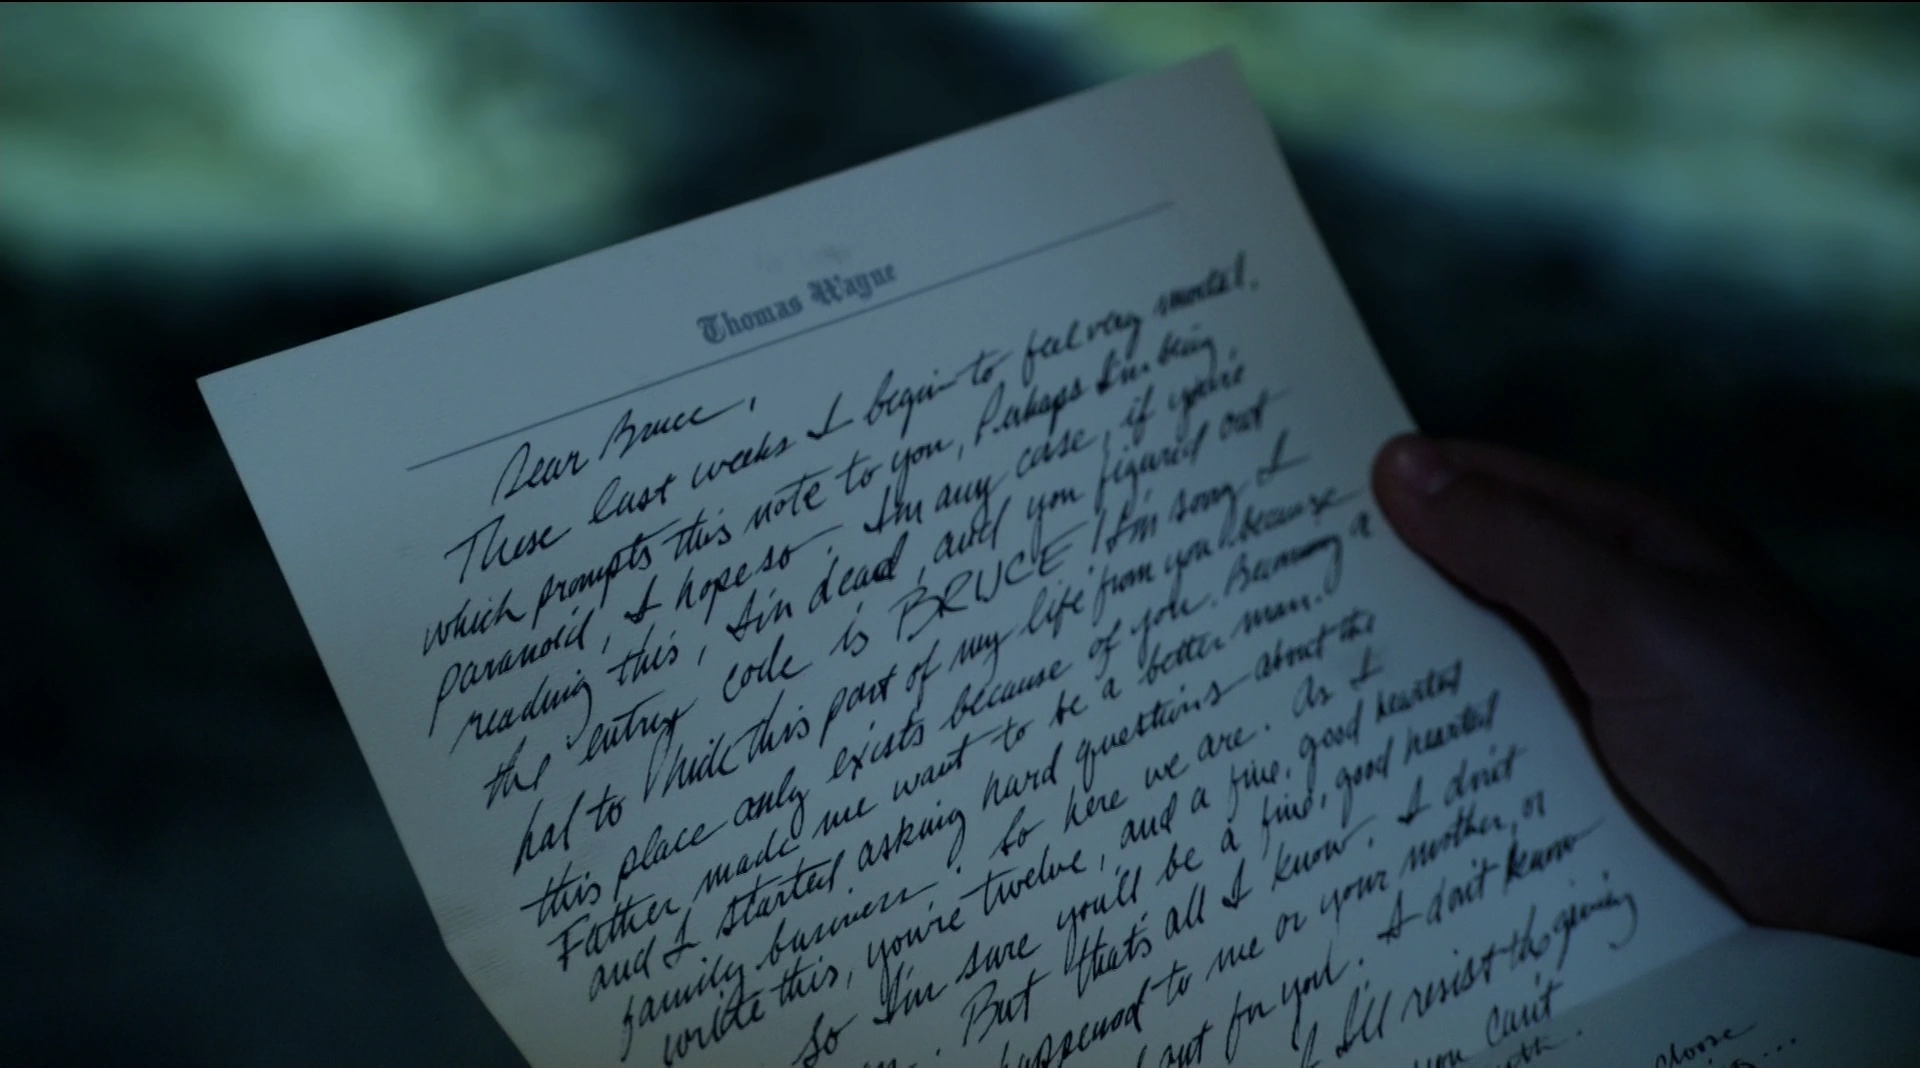 Thomas Wayne
Dear Bruce,
These last weeks I begin to feel very mortal,
which prompts this note to you, Perhaps I'm being
paranoid, I hope so. I'm any case, if you're
reading this, I'm dead, and you figured out
the entry code is BRUCE I'm sorry I
had to hide this part of my life from you because
this place only exists because of you. Becoming a
Father made me want to be a better man.
and I started asking hard questions about the
family business. So here we are. As I
write this, you're twelve, and a fine, good hearted
So I'm sure you'll be a fine, good hearted
But that's all I know. I don't
happened to me or your mother, or
out for you. I don't know
I'll resist the giving
you can't
choose